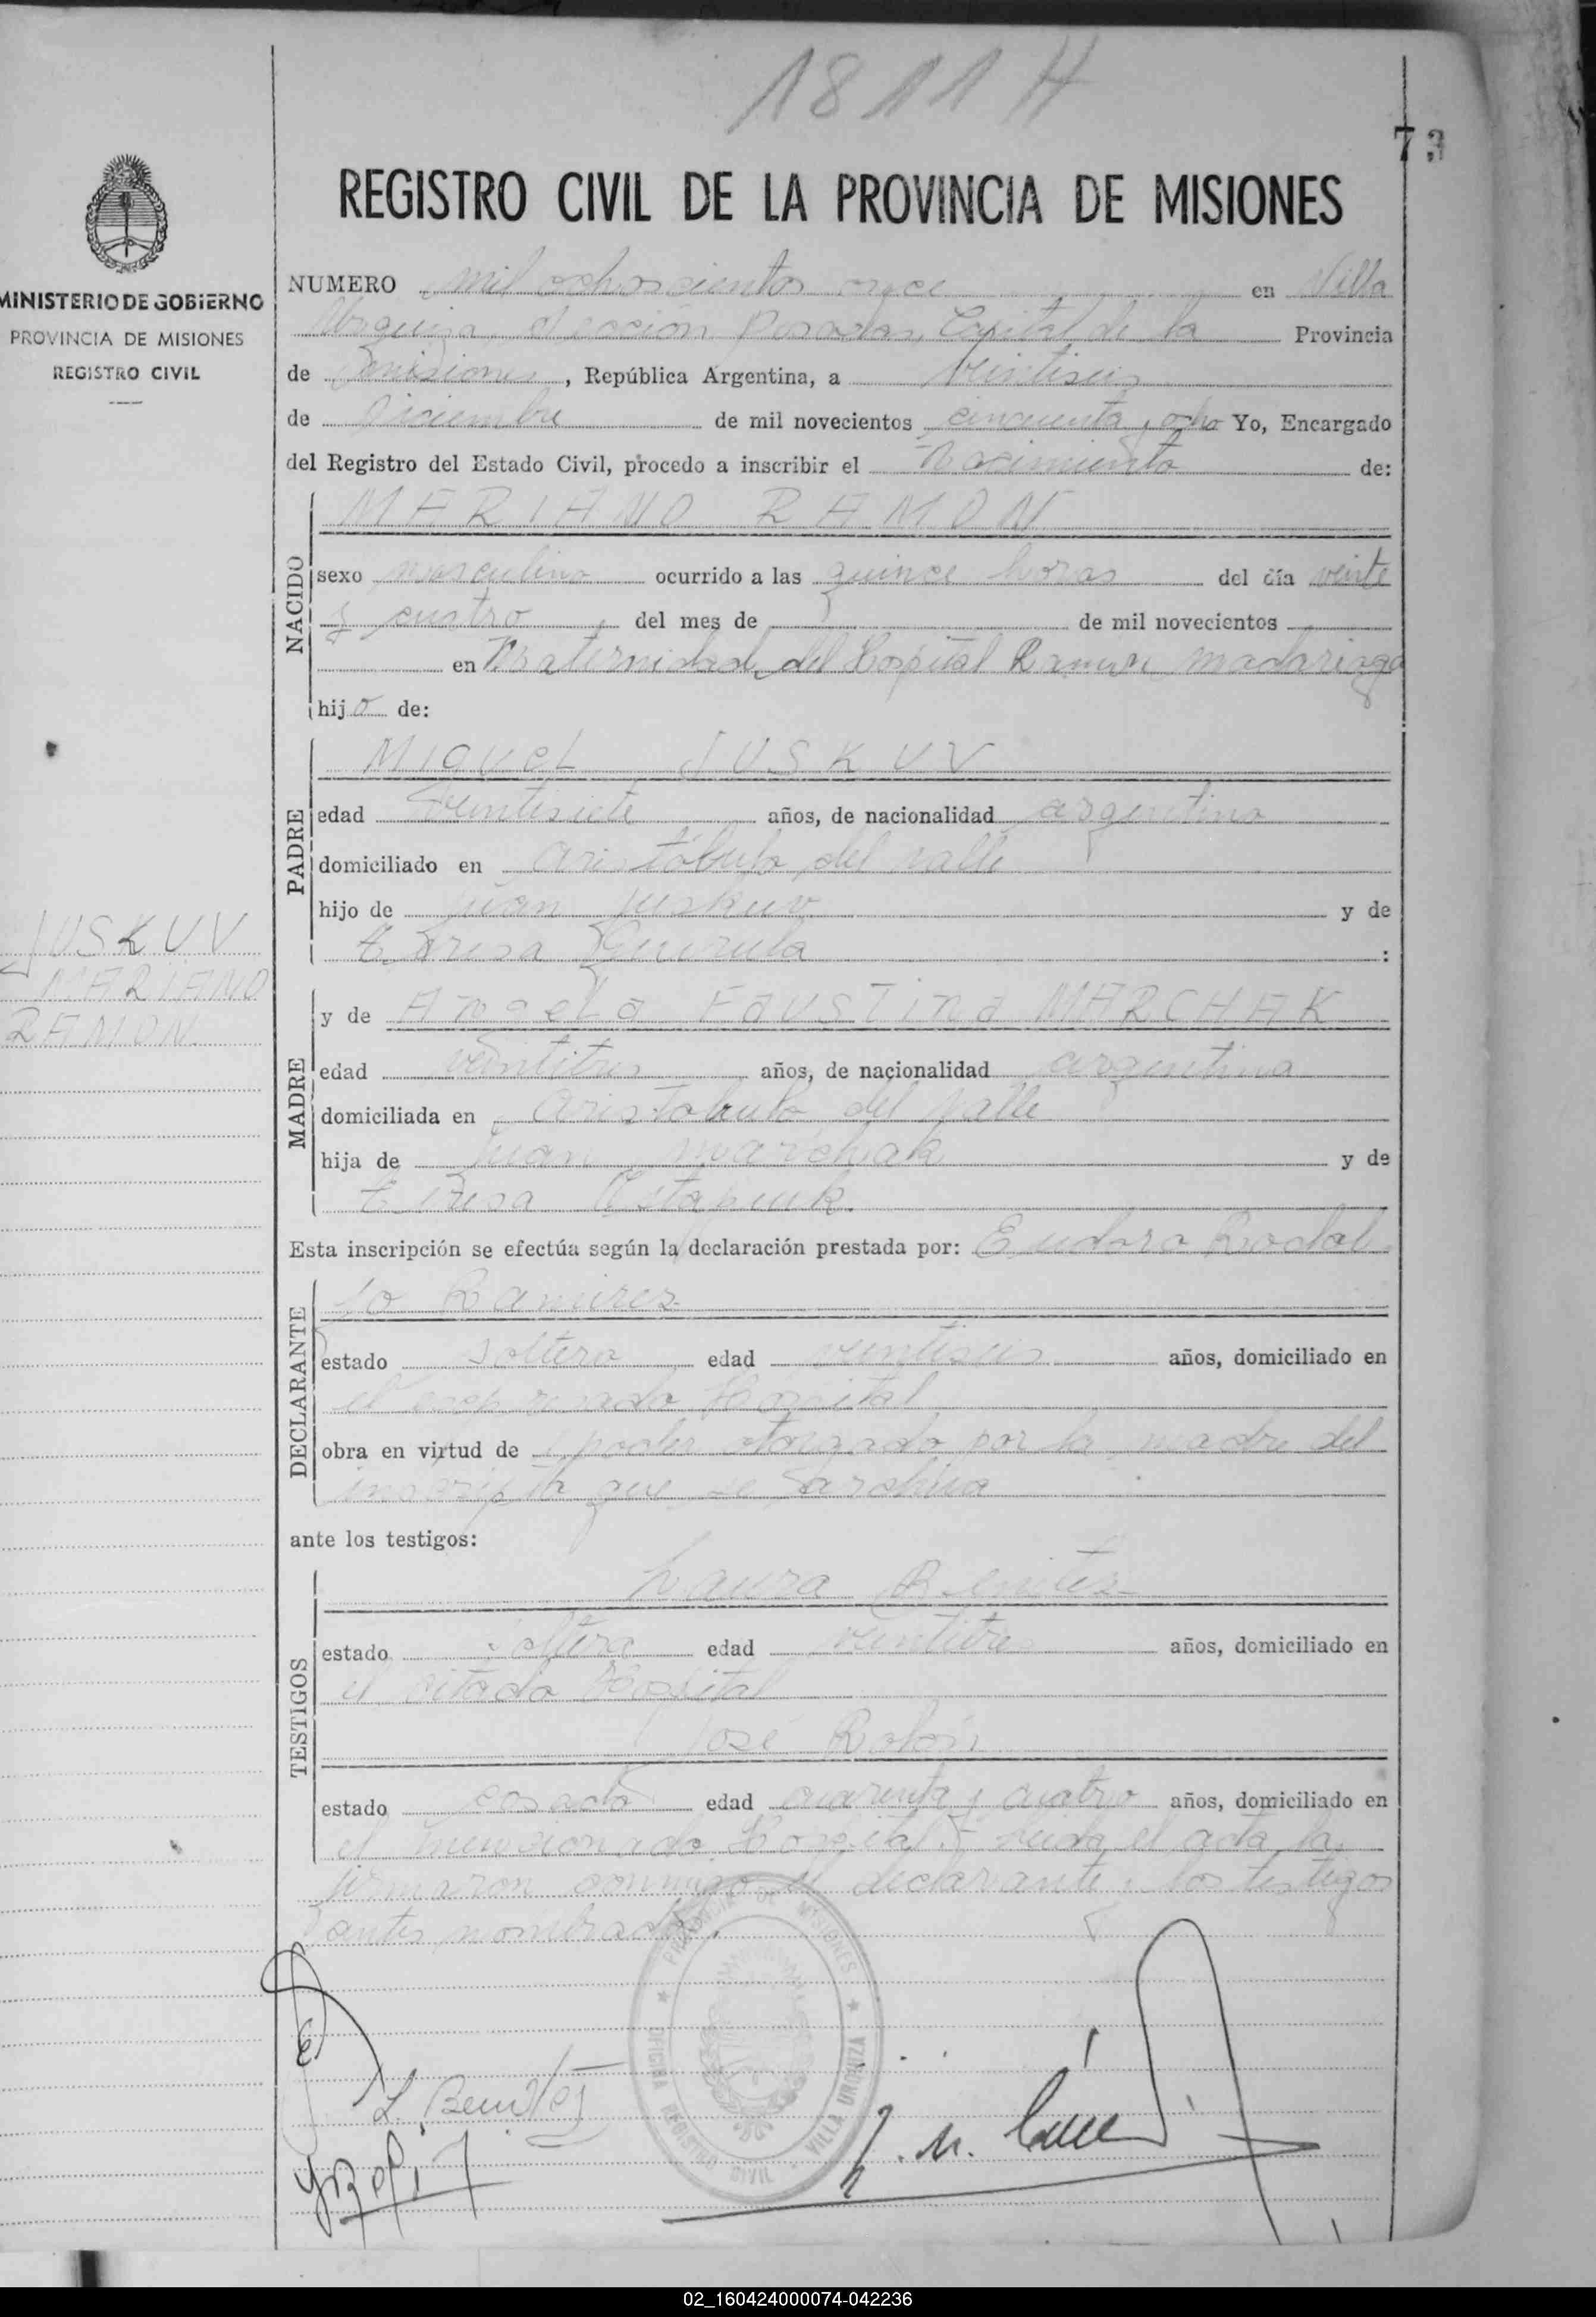 1811 H
73
REGISTRO CIVIL DE LA PROVINCIA DE MISIONES
MINISTERIO DE GOBIERNO
PROVINCIA DE MISIONES
REGISTRO CIVIL
NUMERO mil ochoscientos once en Villa
Urquiza Sección Posadas, Capital de la Provincia
de Misiones, República Argentina, a veintiseis
de Diciembre de mil novecientos cincuenta y ocho Yo, Encargado
del Registro del Estado Civil, procedo a inscribir el Nacimiento de:
NACIDO
MARIANO RAMON
sexo masculino ocurrido a las quince horas del día veinte
y cuatro del mes de de mil novecientos
en Maternidad del Hospital Ramon Madariaga
hijo de:
PADRE
MIGUEL JUSKUV
edad veintisiete años, de nacionalidad argentino
domiciliado en Aristóbulo del Valle
hijo de Juan Juskuv y de
Teresa :
JUSKUV
MARIANO
RAMON
MADRE
y de Angela Faustina MARCHAK
edad veintitres años, de nacionalidad argentina
domiciliada en Aristobulo del Valle
hija de Juan Marchak y de
Teresa Ostapiuk.
Esta inscripción se efectúa según la declaración prestada por: Eudoro Rodol
fo Ramirez
DECLARANTE
estado soltero edad veintiseis años, domiciliado en
el expresado Hospital
obra en virtud de poder otorgado por la madre del
inscripto que se archiva
ante los testigos:
TESTIGOS
Laura Benitez
estado soltera edad veintitres años, domiciliado en
el citado Hospital
José Rolón
estado casado edad cuarenta y cuatro años, domiciliado en
el mencionado Hospital. Leida el acta la
firmaron conmigo el declarante y los testigos
antes nombrados.
PROVINCIA DE MISIONES
OFICINA REGISTRO CIVIL VILLA URQUIZA
L. Benitez
02_160424000074-042236